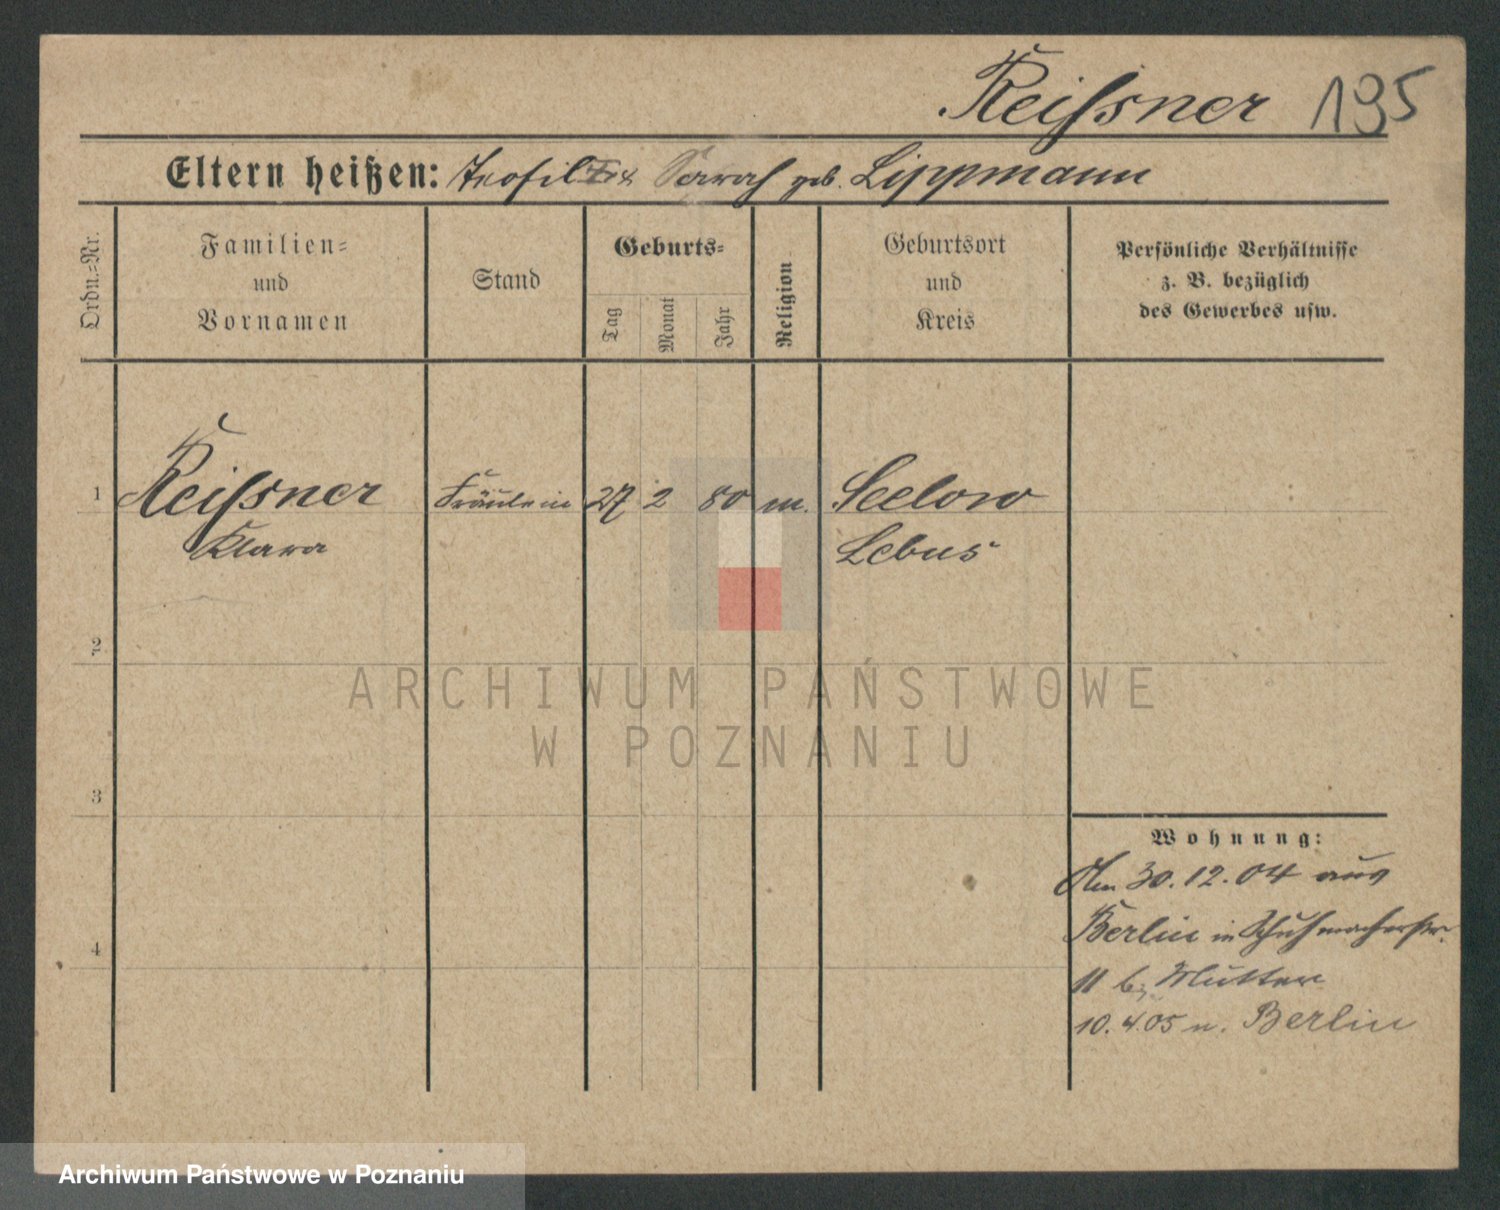 Reißner 195
Eltern heißen: Teofil & Sarah geb. Lippmann
Ordn.=Nr.
Familien=
und
Vornamen
Stand
Geburts=
Tag
Monat
Jahr
Religion
Geburtsort
und
Kreis
Persönliche Verhältnisse
z. B. bezüglich
des Gewerbes usw.
1 Reißner Fräulein 27 2 80 m. Seelow
Klara Lebus
2
3
4
Wohnung:
Am 30.12.04 aus
Berlin in Schuhmacherstr.
11 b. Mutter
10.4.05 n. Berlin
ARCHIWUM PAŃSTWOWE
W POZNANIU
Archiwum Państwowe w Poznaniu